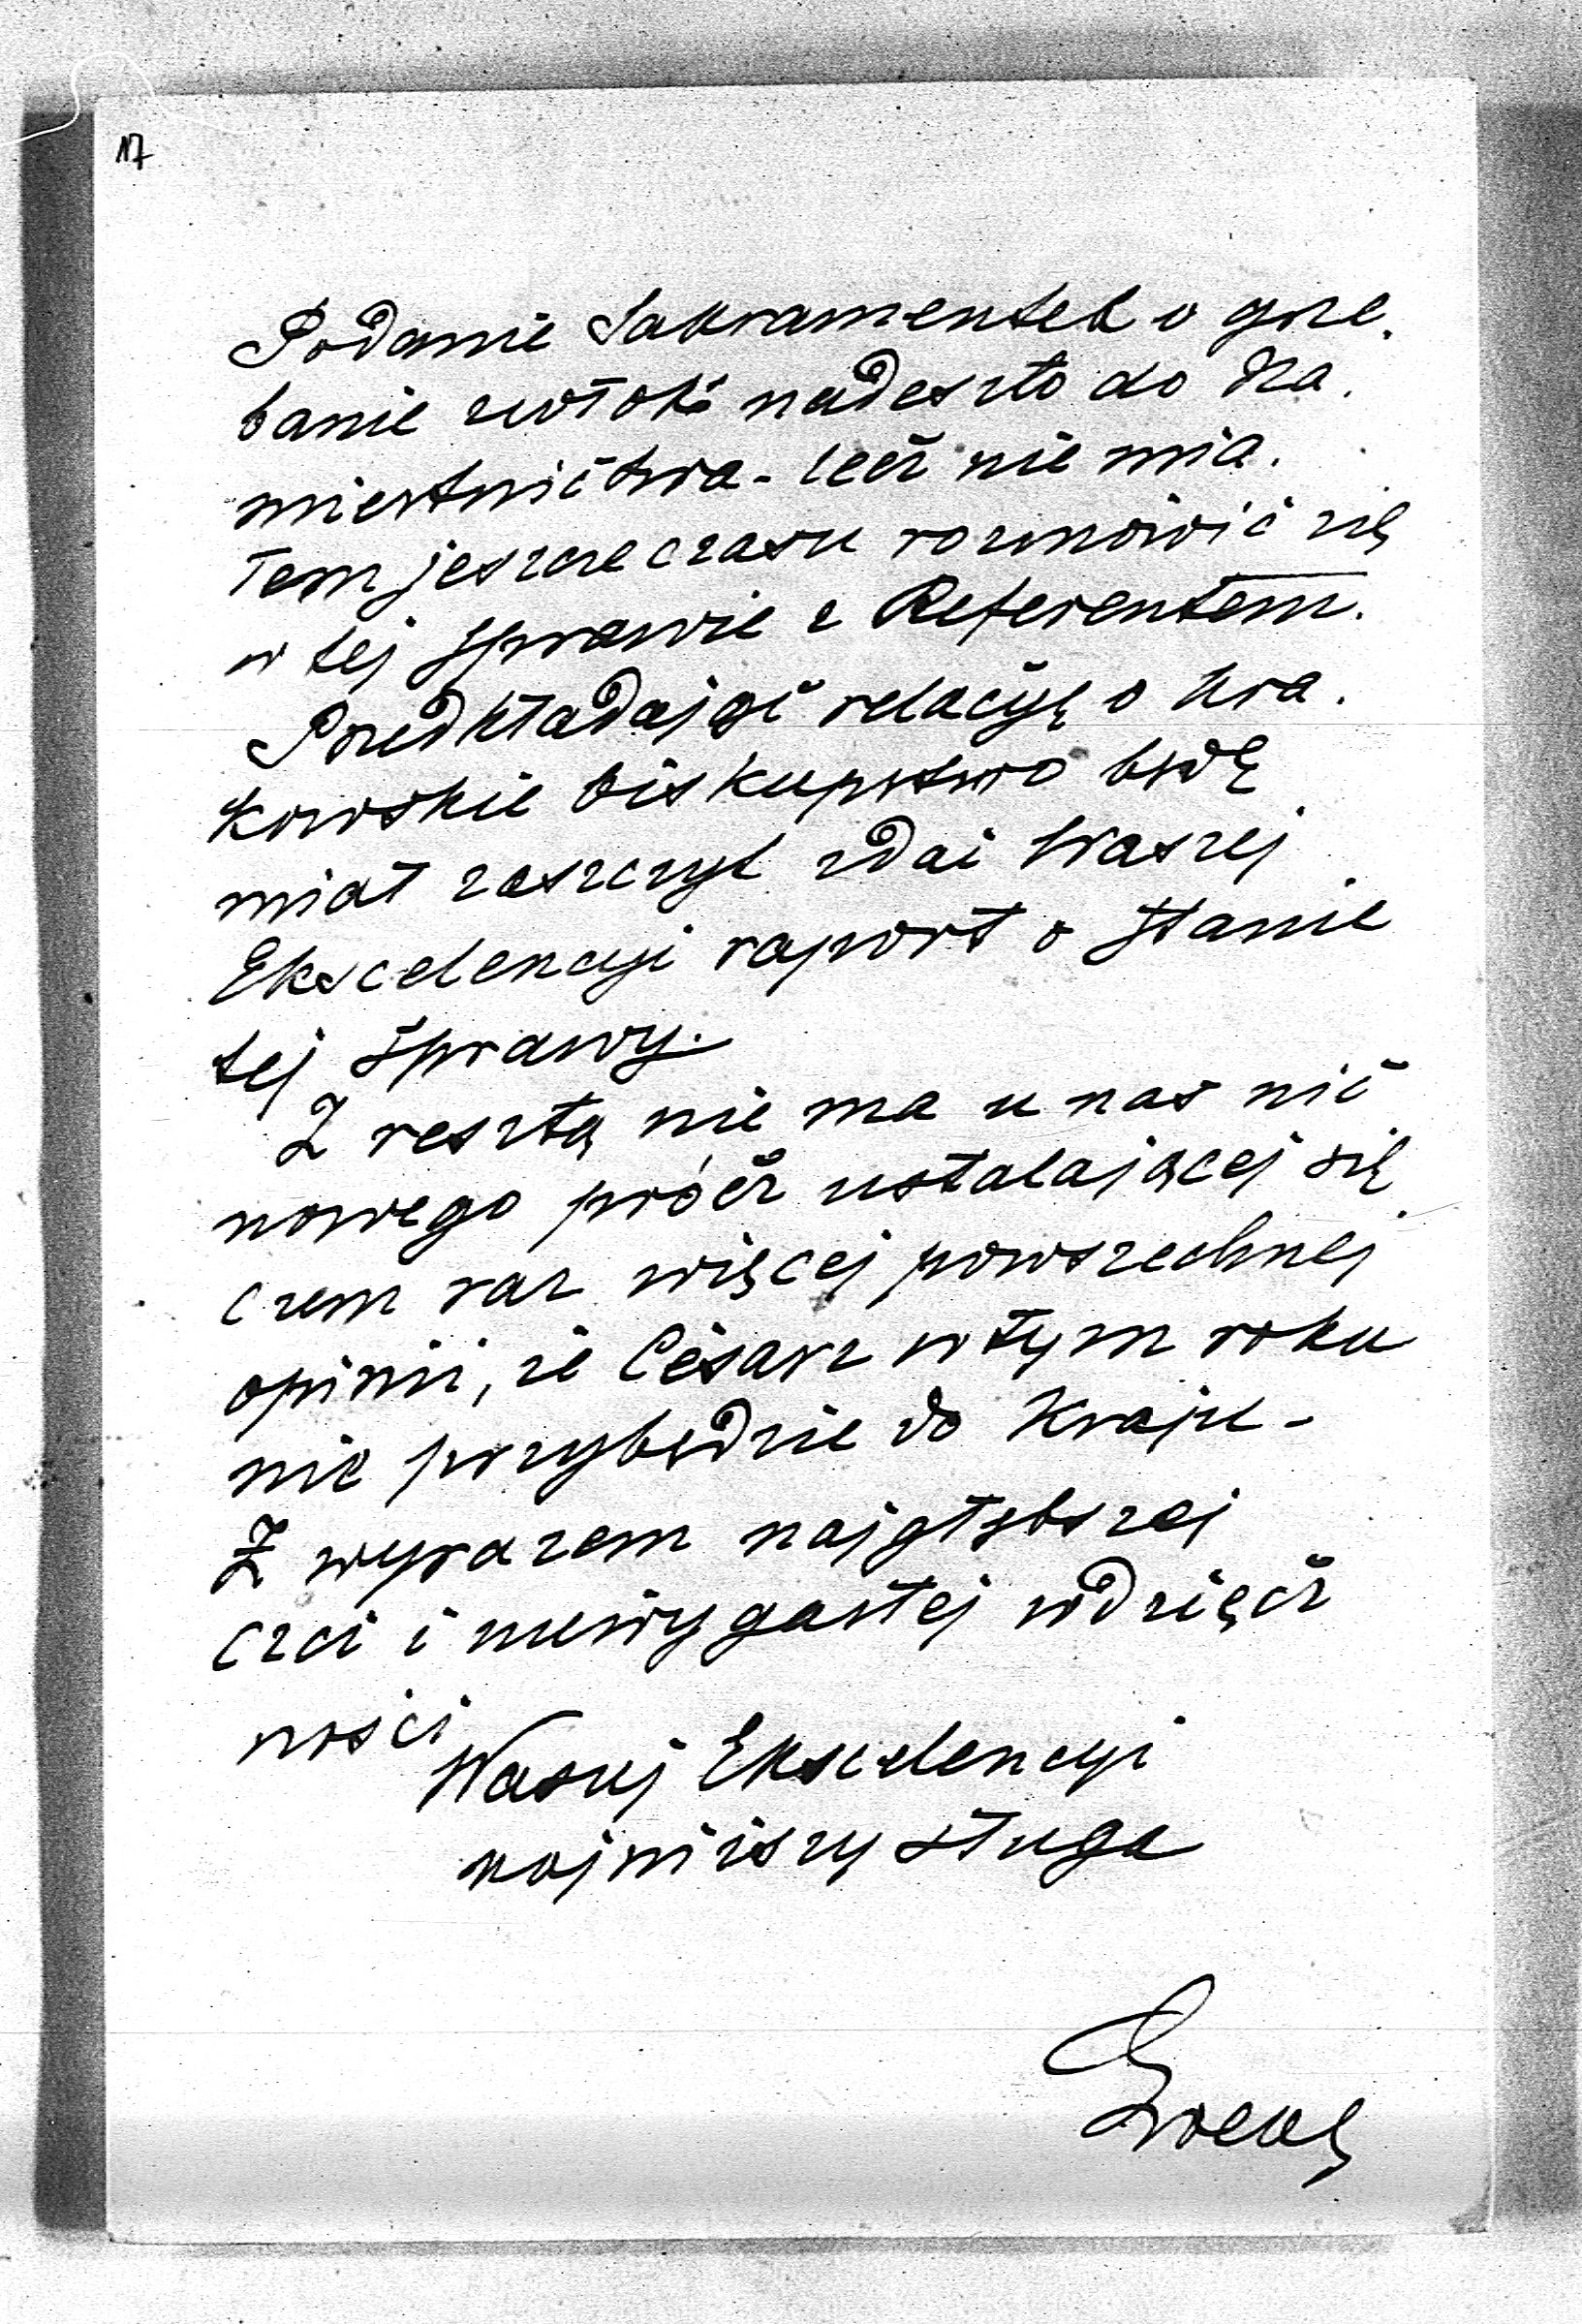 17
Podanie Sakramentek o grze.
banie zwłok nadeszło do Na.
miestnictwa - lecz nie mia.
łem jeszcze czasu rozmówić się
w tej sprawie z Referentem.
Przedkładając relacyę o kra.
kowskie biskupstwo będę
miał zaszczyt zdać Waszej
Ekscelencyi raport o stanie
tej sprawy.
Z resztą nie ma u nas nic
nowego prócz ustalającej się
czem raz więcej powszechnej
opinii, że Cesarz w tym roku
nie przybędzie do Kraju -
Z wyrazem najgłębszej
czci i niewygasłej wdzięcz
ności
Waszej Ekscelencyi
najniższy sługa